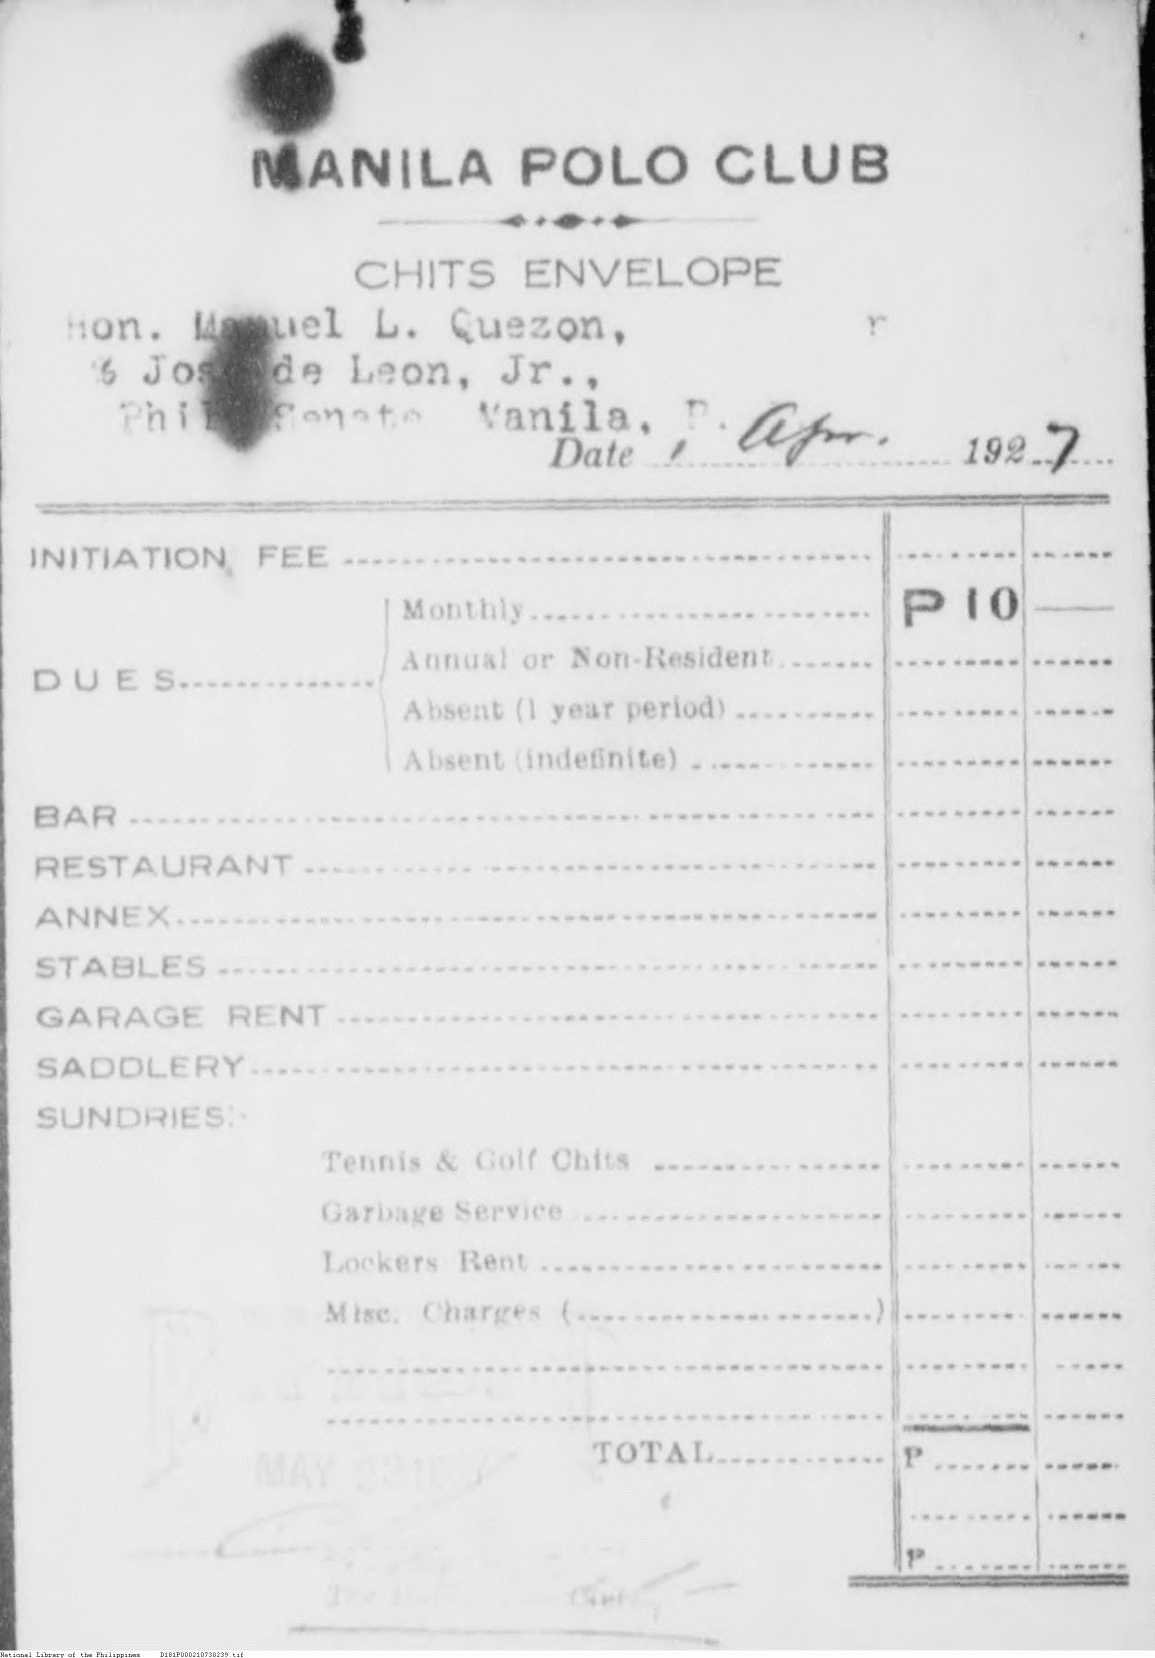 MANILA POLO CLUB
CHITS ENVELOPE
Hon. Manuel L. Quezon,
% Jose de Leon, Jr.,
Phil. Senate Manila, P.
Date 1 Apr. 1927
INITIATION FEE
Monthly P 10
Annual or Non-Resident
DUES
Absent (1 year period)
Absent (indefinite)
BAR
RESTAURANT
ANNEX
STABLES
GARAGE RENT
SADDLERY
SUNDRIES:-
Tennis & Golf Chits
Garbage Service
Lockers Rent
Misc. Charges ( )
TOTAL P
P
MAY
National Library of the Philippines D181P000210730239.tif